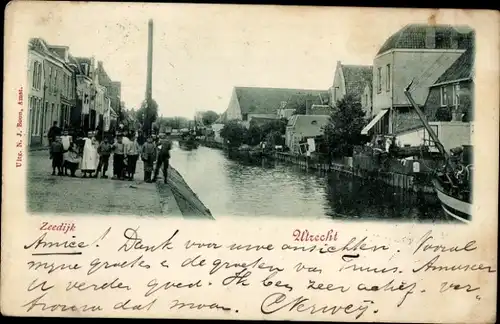 Uitg. N. J. Boon, Amst.
Zeedijk
Utrecht
Amice! Dank voor uwe ansichten. Vooral
mijne groeten & de groeten van Truus. Amuseer
u verder goed. Ik ben zeer actief. ver
trouw dat maar.